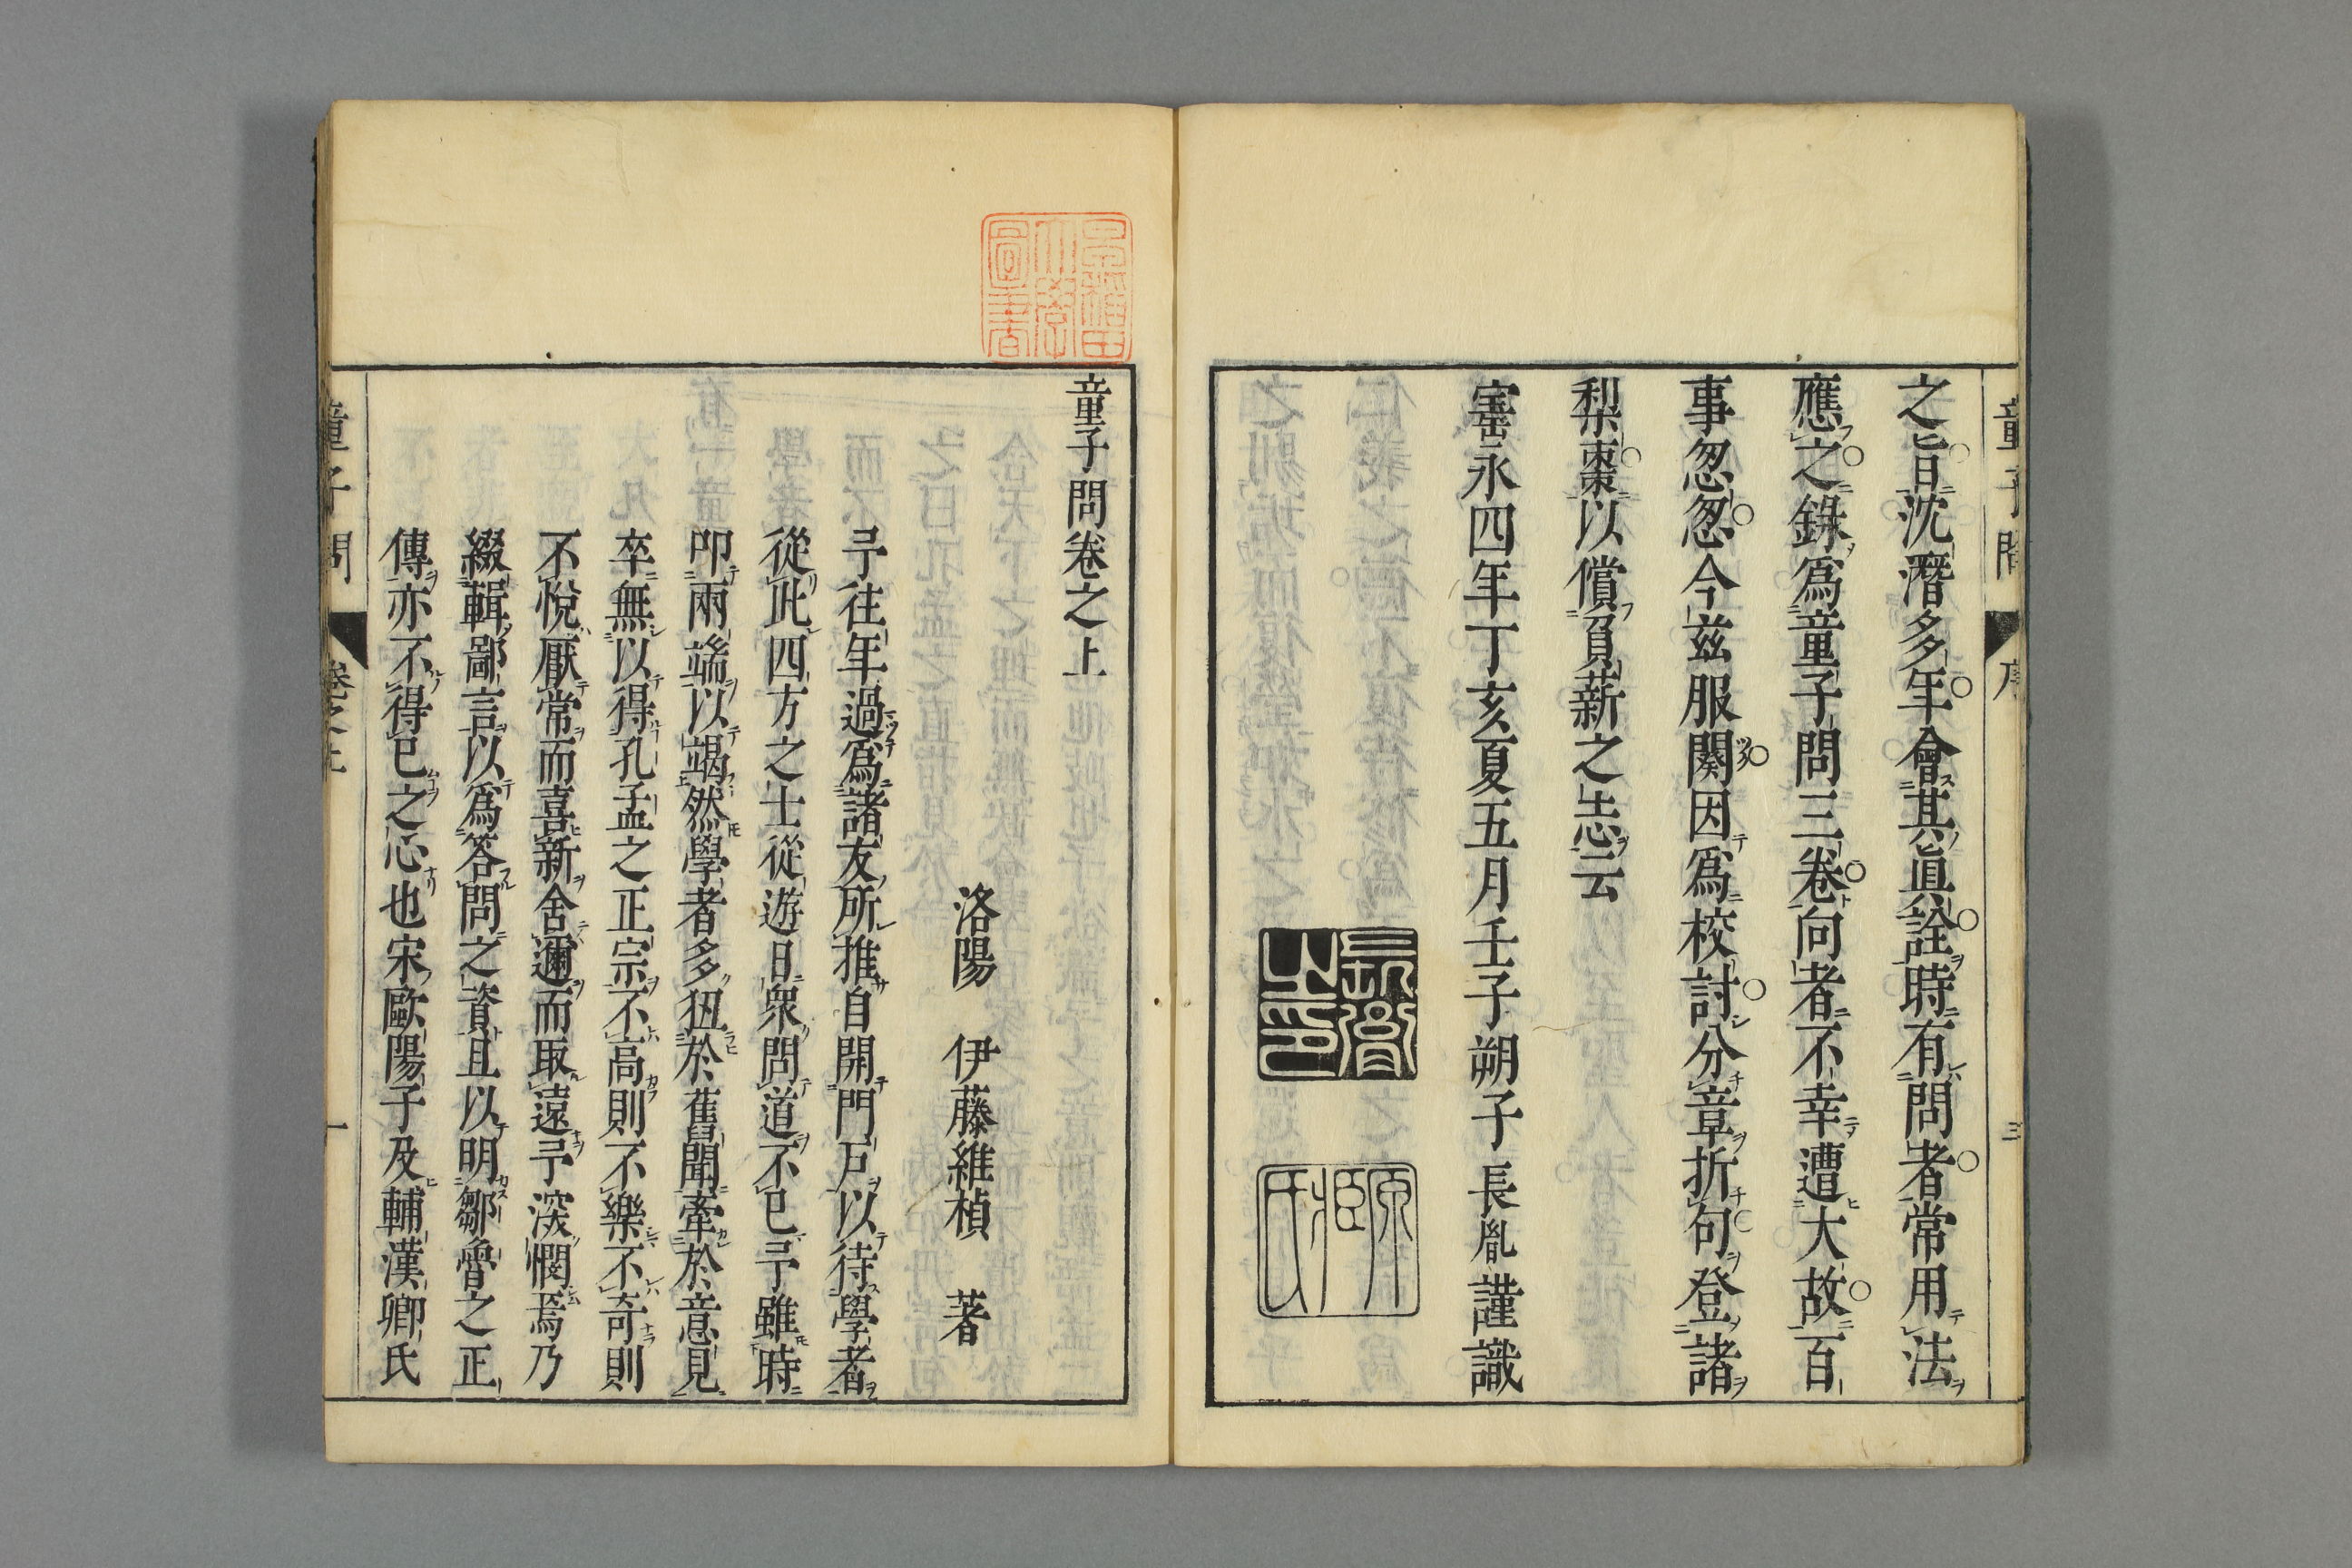 之旨沈潛多年會其眞詮時有問者常用法
應之錄爲童子問三卷向者不幸遭大故百
事怱怱今茲服闋因爲校討分章折句登諸
梨棗以償負薪之志云
寳永四年丁亥夏五月壬子朔子長胤謹識
童子問
序
三
早稲田
大學
圖書
童子問卷之上
洛陽 伊藤維楨 著
予往年過爲諸友所推自開門戸以待學者
從此四方之士從遊日衆問道不已予雖時
叩兩端以竭然學者多狃於舊聞牽於意見
卒無以得孔孟之正宗不高則不樂不奇則
不悅厭常而喜新舍邇而取遠予深憫焉乃
綴輯鄙言以爲答問之資且以明鄒魯之正
傳亦不得已之心也宋歐陽子及輔漢卿氏
童子問
卷之上
一